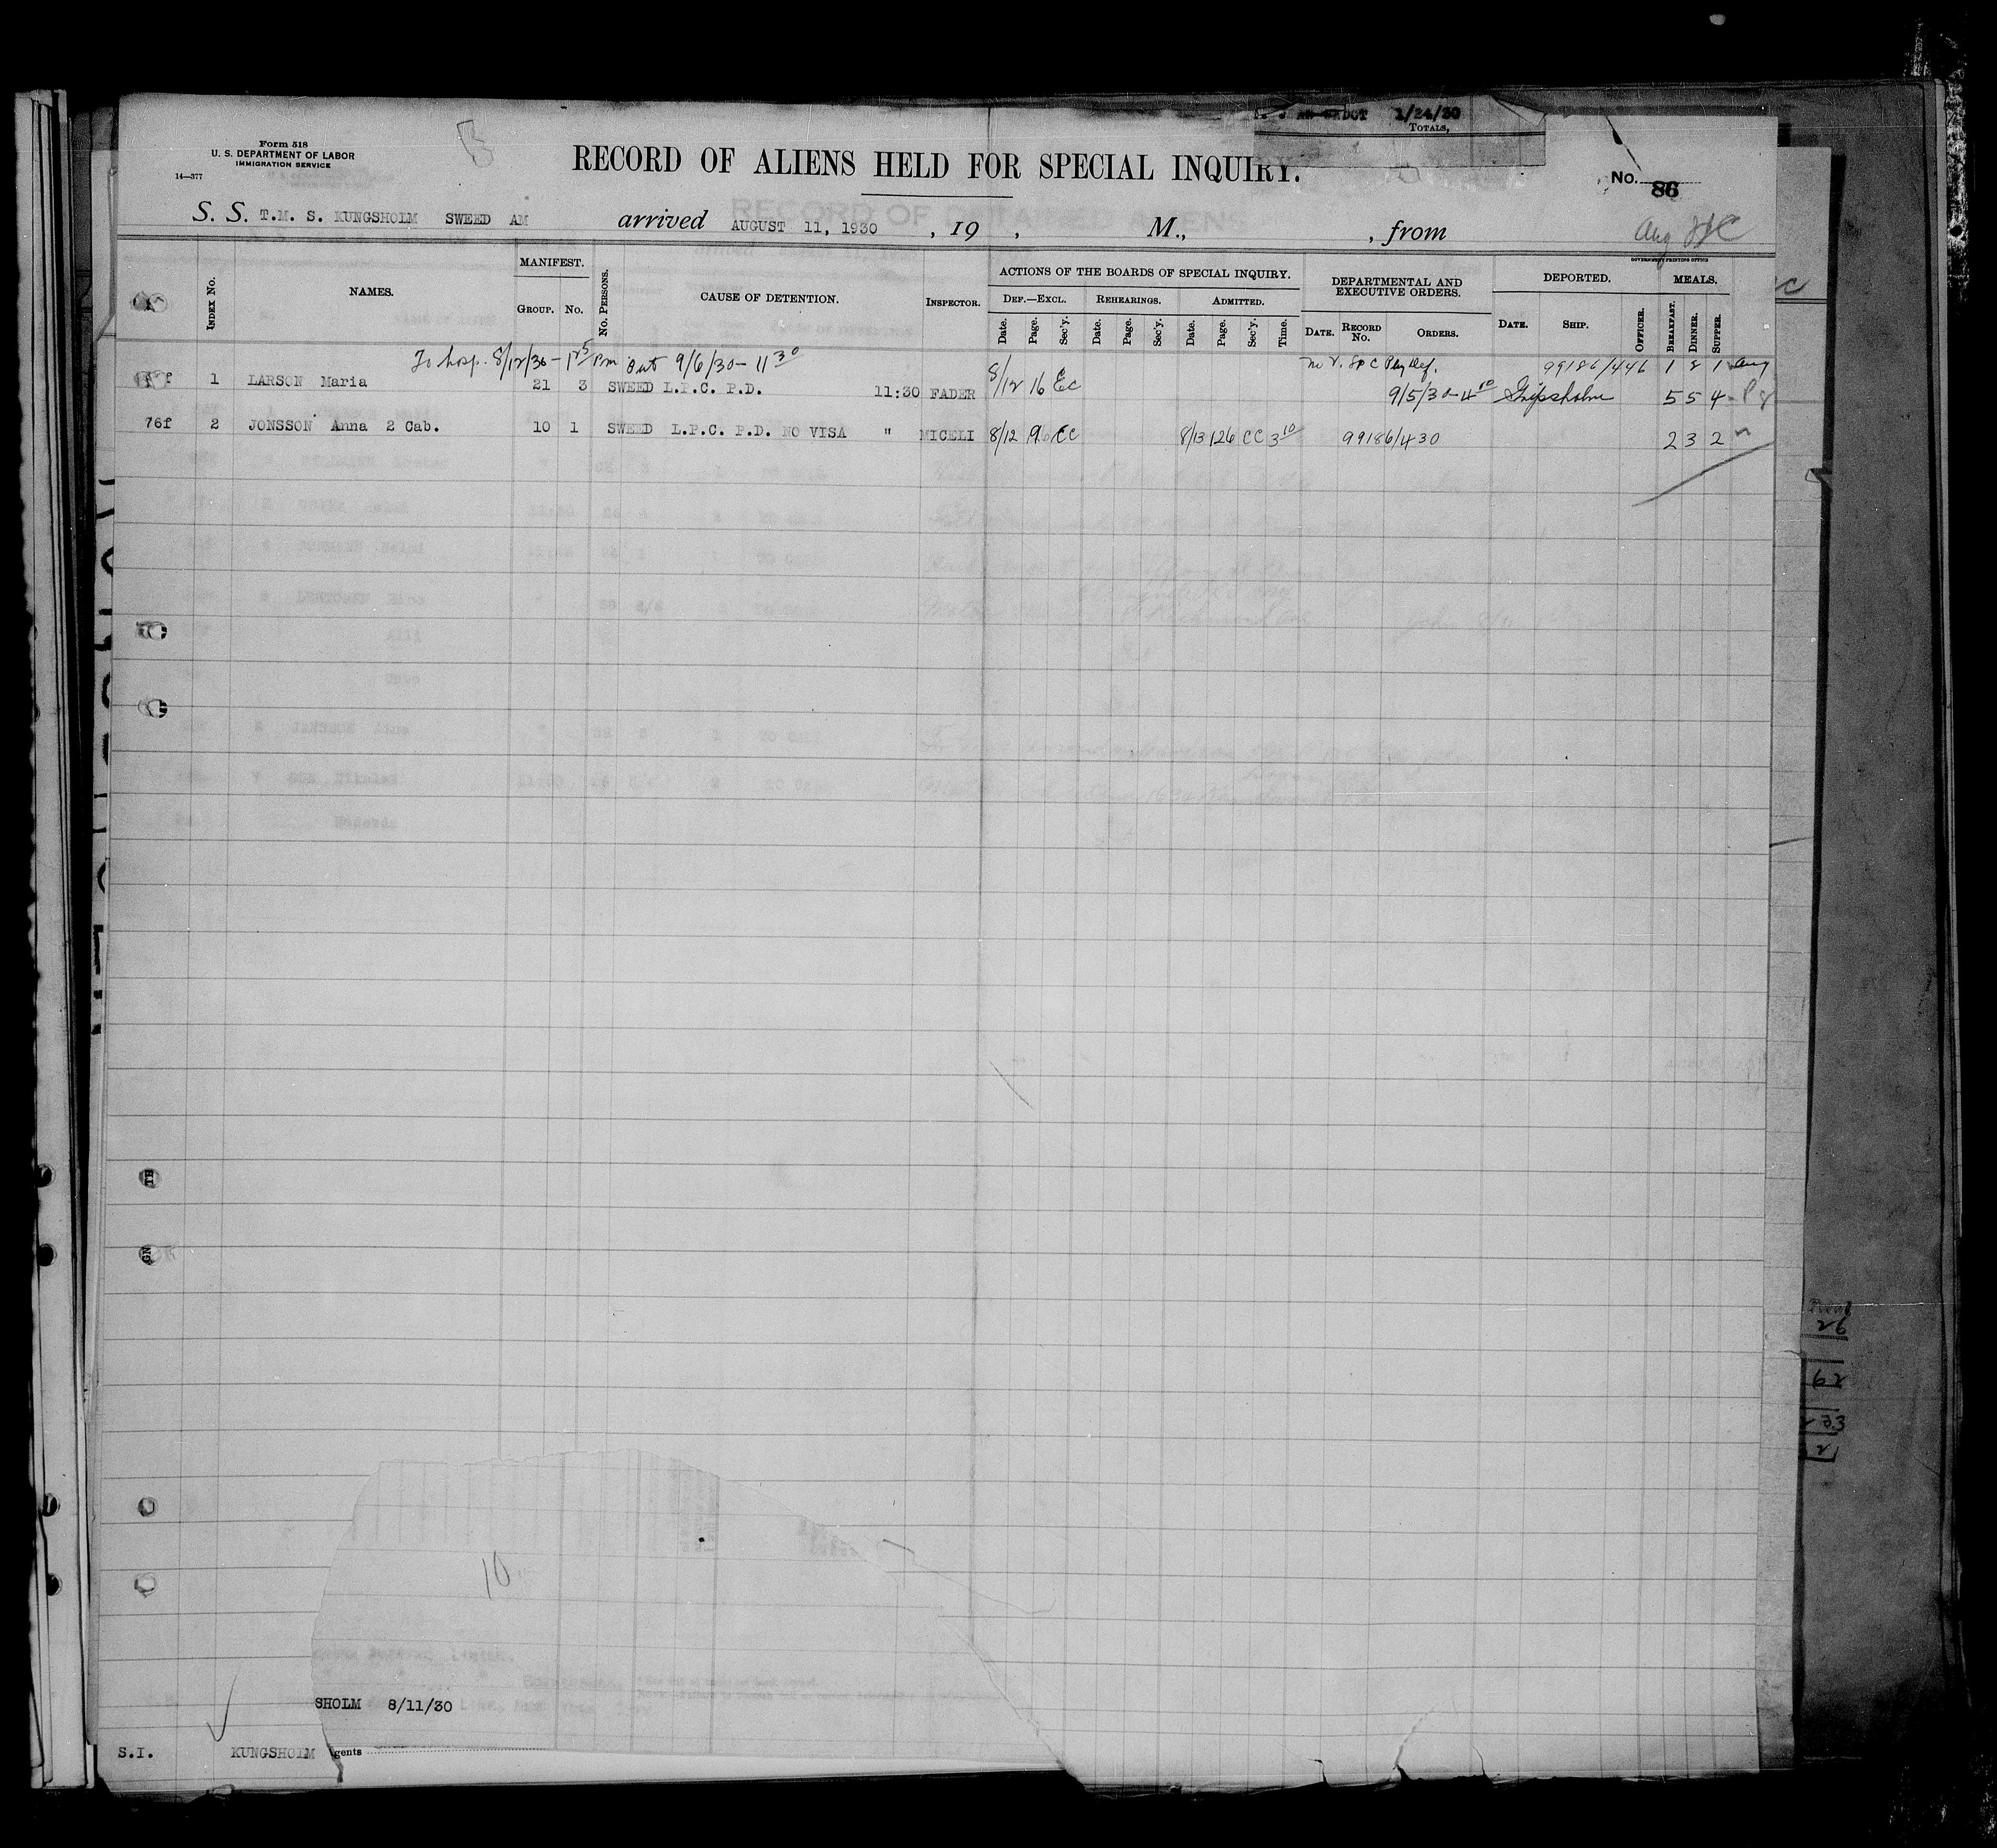 1/24/30
TOTALS,
Form 518
U. S. DEPARTMENT OF LABOR
IMMIGRATION SERVICE
14—377
RECORD OF ALIENS HELD FOR SPECIAL INQUIRY.
No. 86
S. S. T.M. S. KUNGSHOLM SWEED AM arrived AUGUST 11, 1930 , 19 , M., , from
Aug
GOVERNMENT PRINTING OFFICE
INDEX No. NAMES. MANIFEST. GROUP. No. No. PERSONS. CAUSE OF DETENTION. INSPECTOR. ACTIONS OF THE BOARDS OF SPECIAL INQUIRY. DEF.—EXCL. Date. Page. Sec'y. REHEARINGS. Date. Page. Sec'y. ADMITTED. Date. Page. Sec'y. Time. DEPARTMENTAL AND EXECUTIVE ORDERS. DATE. RECORD No. ORDERS. DEPORTED. DATE. SHIP. OFFICER. MEALS. BREAKFAST. DINNER. SUPPER.
To hosp. 8/12/30 - 1 25 Pm Out 9/6/30 - 11 30 99186/446 1 2 1 Aug
1 LARSON Maria 21 3 SWEED L.P.C. P.D. 11:30 FADER 8/12 16 EC 9/5/30 - 4 10 Gripsholm 5 5 4
76f 2 JONSSON Anna 2 Cab. 10 1 SWEED L.P.C. P.D. NO VISA " MICELI 8/12 9 CC 8/13 126 CC 3 10 99186/430 2 3 2
26
62
233
21
10
SHOLM 8/11/30
S.I. KUNGSHOLM Agents